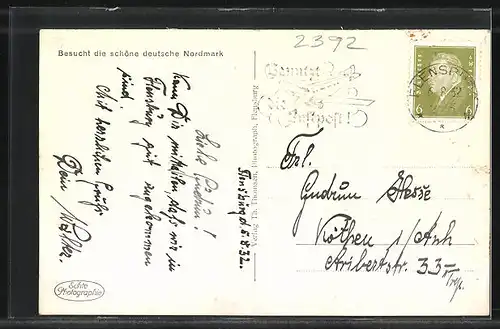 Besucht die schöne deutsche Nordmark
2392
Benutzt
die
Luftpost!
FLENSBURG
6 6
Flensburg d. 5.8.32.
Liebe Gudrun!
Kann Dir mitteilen, daß wir in
Flensburg gut angekommen
sind.
Mit herzlichem Gruß
Dein Walter.
Verlag Th. Thomsen, Photograph, Flensburg
Frl.
Gudrun Hesse
Köthen i/Anh
Aribertstr. 33
Echte
Photographie